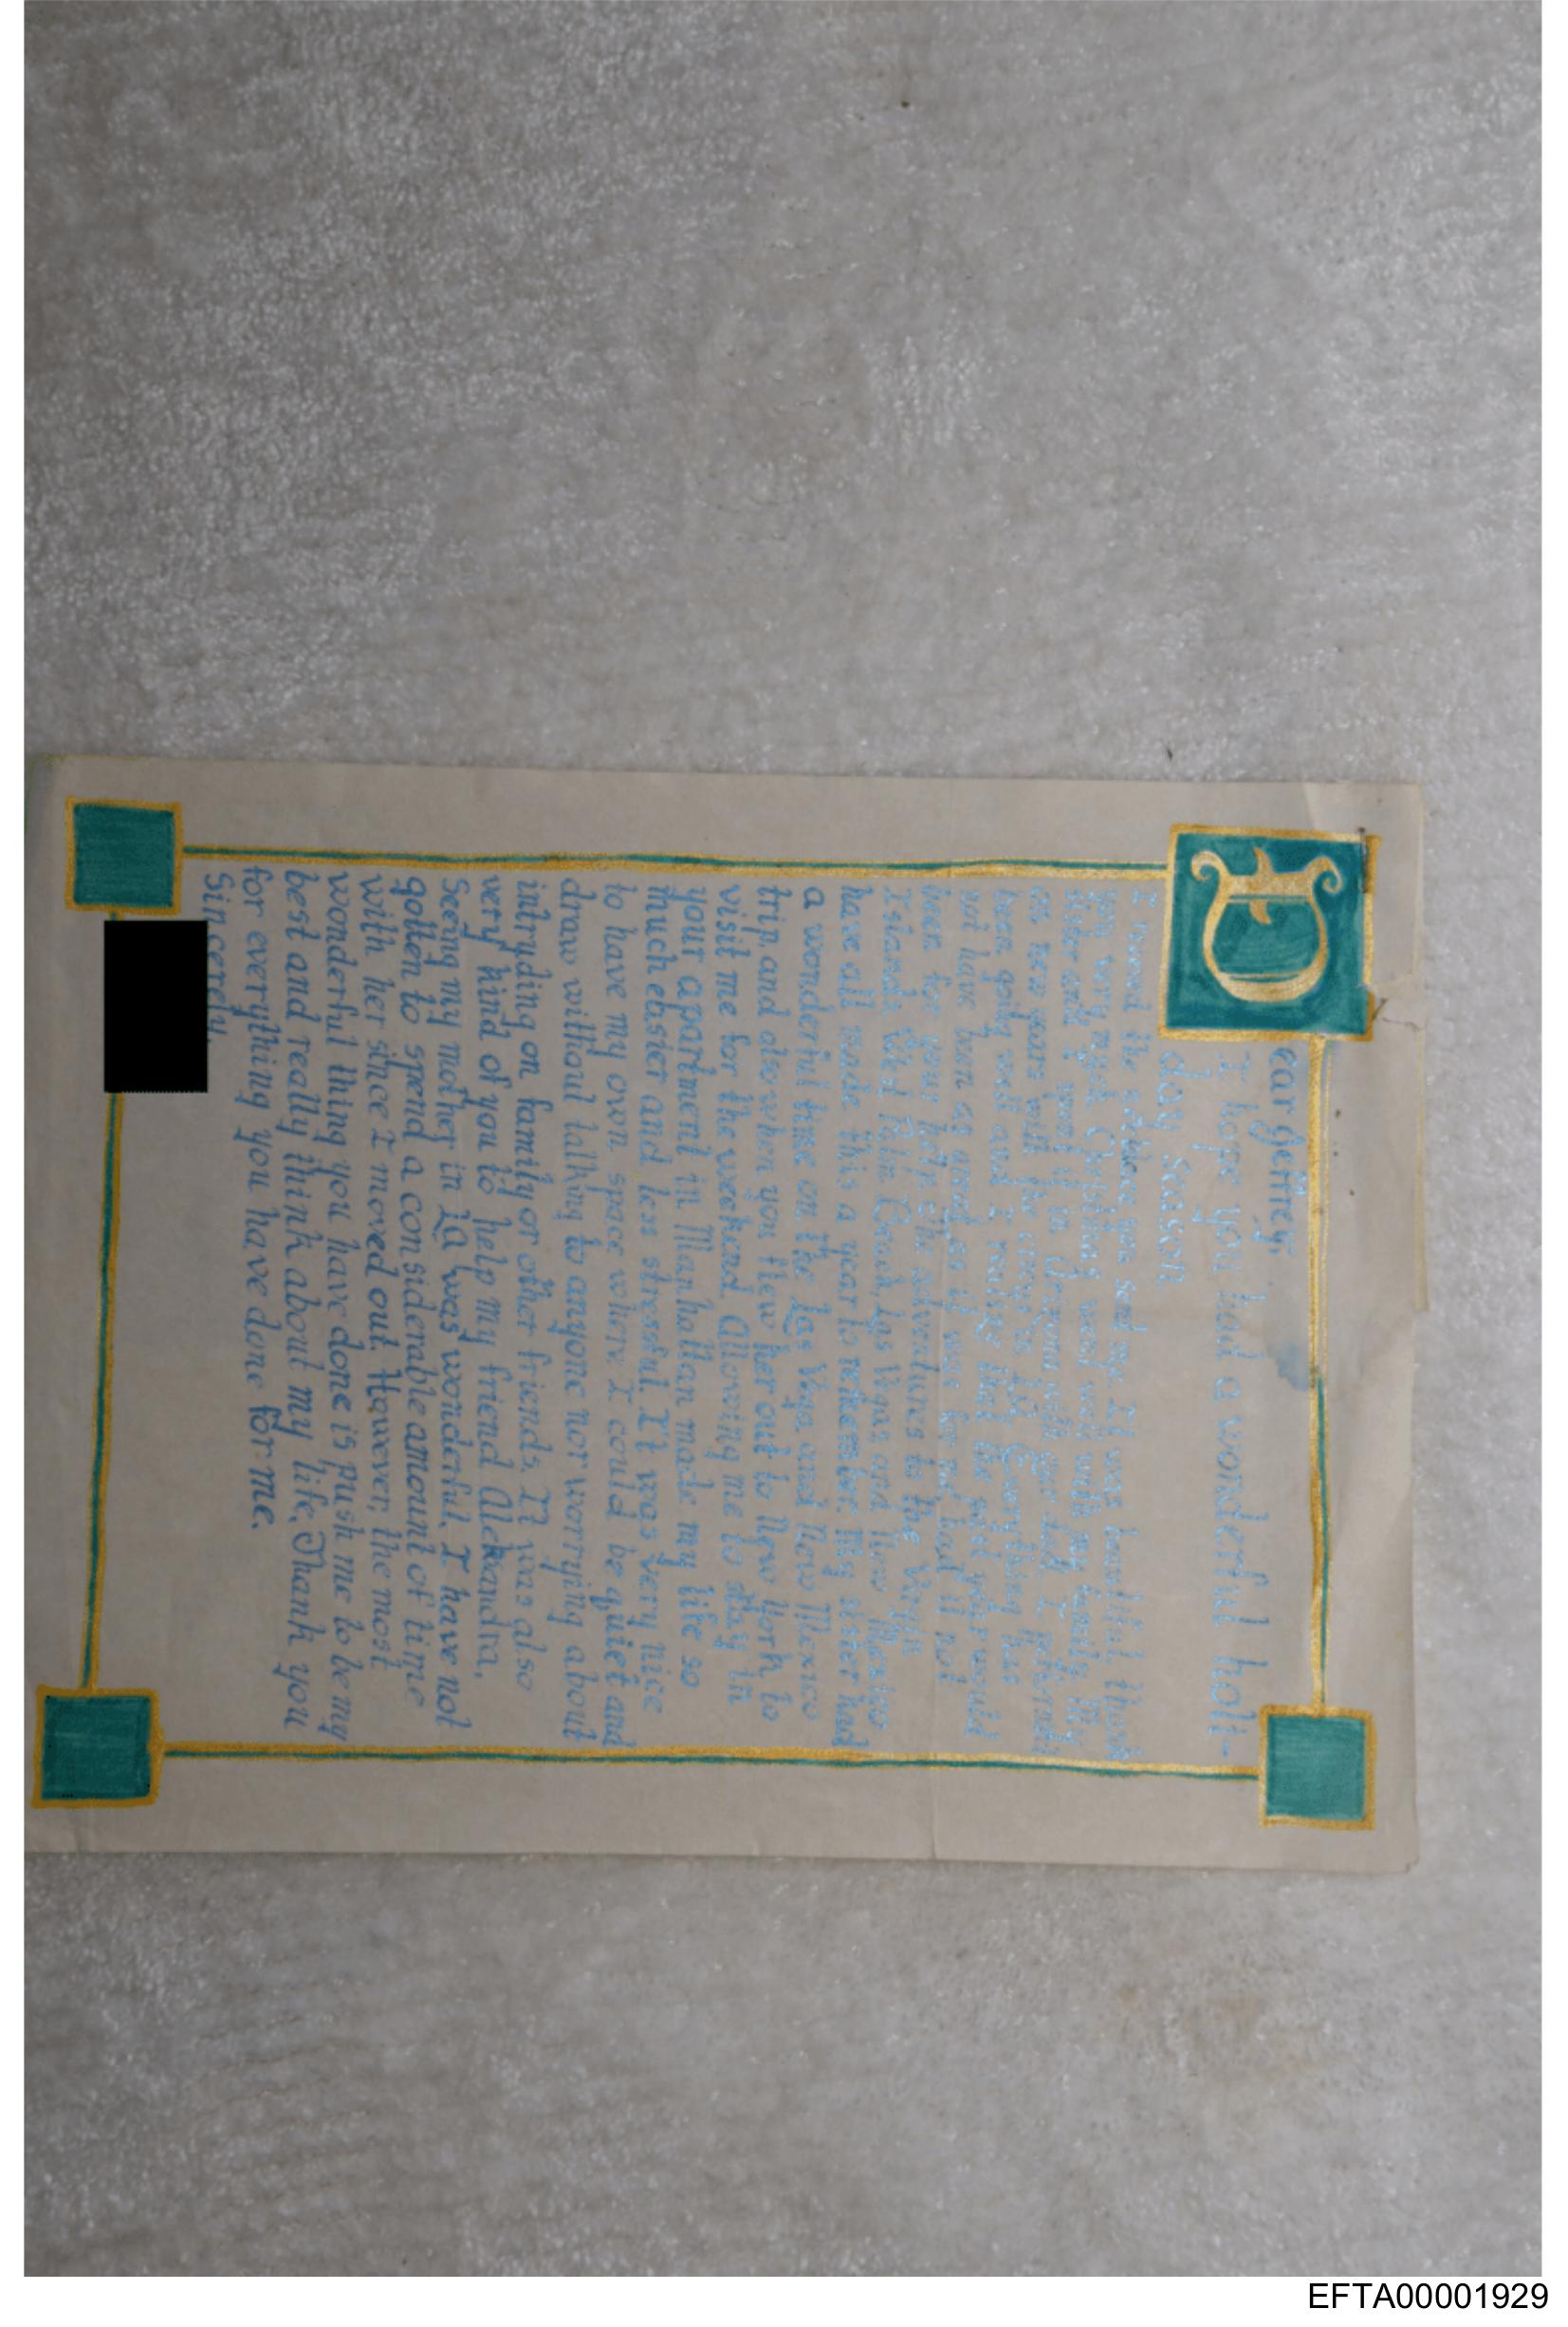 Dear Jeffrey,
I hope you had a wonderful holi-
day season
I you so sent me. It was beautiful, thank
you very much. Christmas went well with my family. My
sister and I went to with our dad. I
on new years with the Everything has
been going well and I realize that the past year would
not have been as as it was for me had it not
been for your help. The adventures to the Virgin
Islands, West Palm Beach, Las Vegas and New Mexico
have all made this a year to remember. My sister had
a wonderful time on the Las Vegas and New Mexico
trip, and also when you flew her out to New York to
visit me for the weekend. Allowing me to stay in
your apartment in Manhattan made my life so
much easier and less stressful. It was very nice
to have my own space where I could be quiet and
draw without talking to anyone nor worrying about
intruding on family or other friends. It was also
very kind of you to help my friend Alexandra.
Seeing my mother in LA was wonderful. I have not
gotten to spend a considerable amount of time
with her since I moved out. However, the most
wonderful thing you have done is push me to be my
best and really think about my life. Thank you
for everything you have done for me.
Sincerely,
EFTA00001929